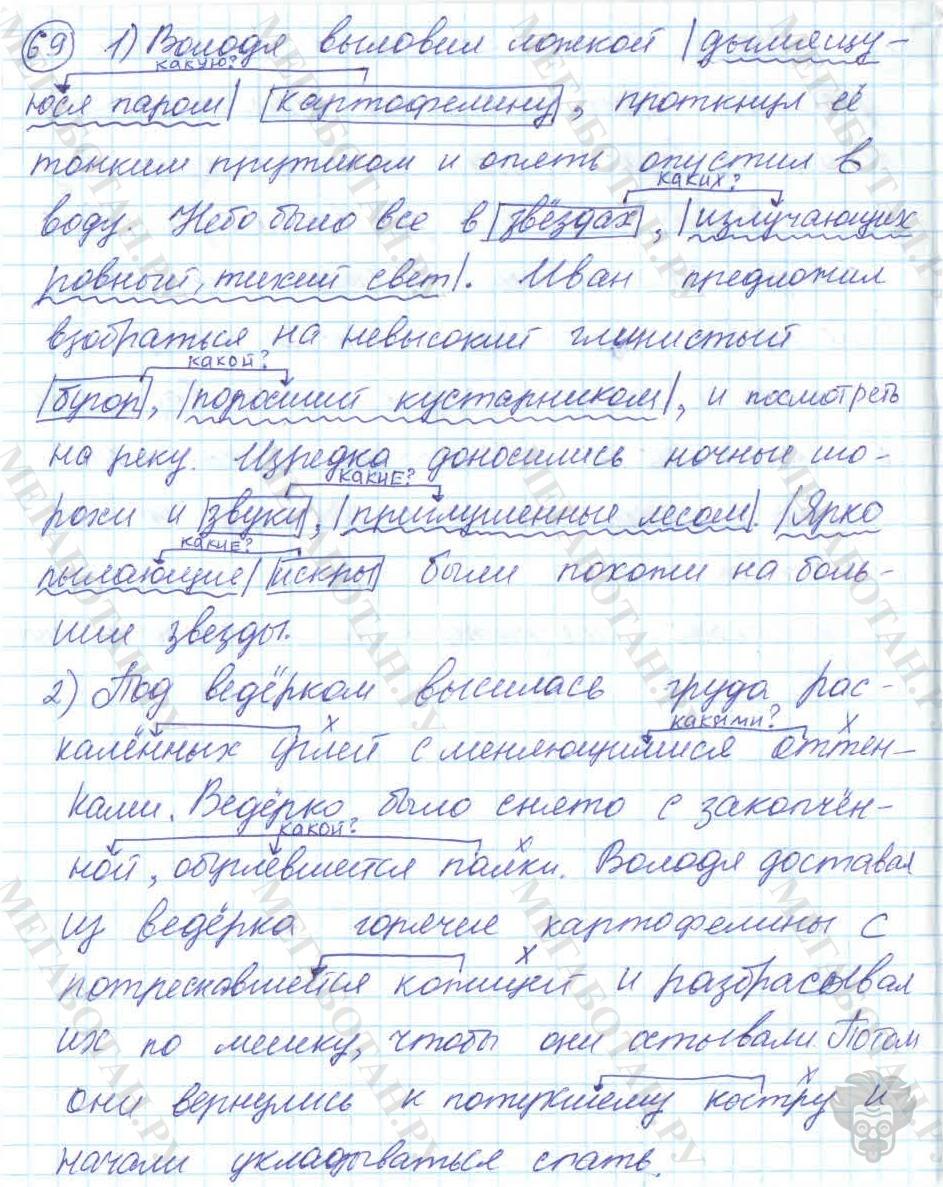 69 1) Володя выловил ложкой |дымящу-
какую?
юся паром| картофелину, проткнул её
тонким прутиком и опять опустил в
каких?
воду. Небо было всё в звёздах, |излучающих
ровный, тихий свет|. Иван предложил
взобраться на невысокий глинистый
какой?
бугор, |поросший кустарником|, и посмотреть
на реку. Изредка доносились ночные шо-
какие?
рохи и звуки, |приглушенные лесом|. |Ярко
какие?
пылающие| искры были похожи на боль-
шие звезды.
2) Под ведёрком высилась груда рас-
какими?
х х
калённых углей с меняющимися оттен-
ками. Ведёрко было снято с закопчён-
какой?
х
ной, обуглевшейся палки. Володя доставал
из ведёрка горячие картофелины с
х
потрескавшейся кожицей и разбрасывал
их по мешку, чтобы они остывали. Потом
х
они вернулись к потухшему костру и
начали укладываться спать.
МЕГАБОТАН.РУ